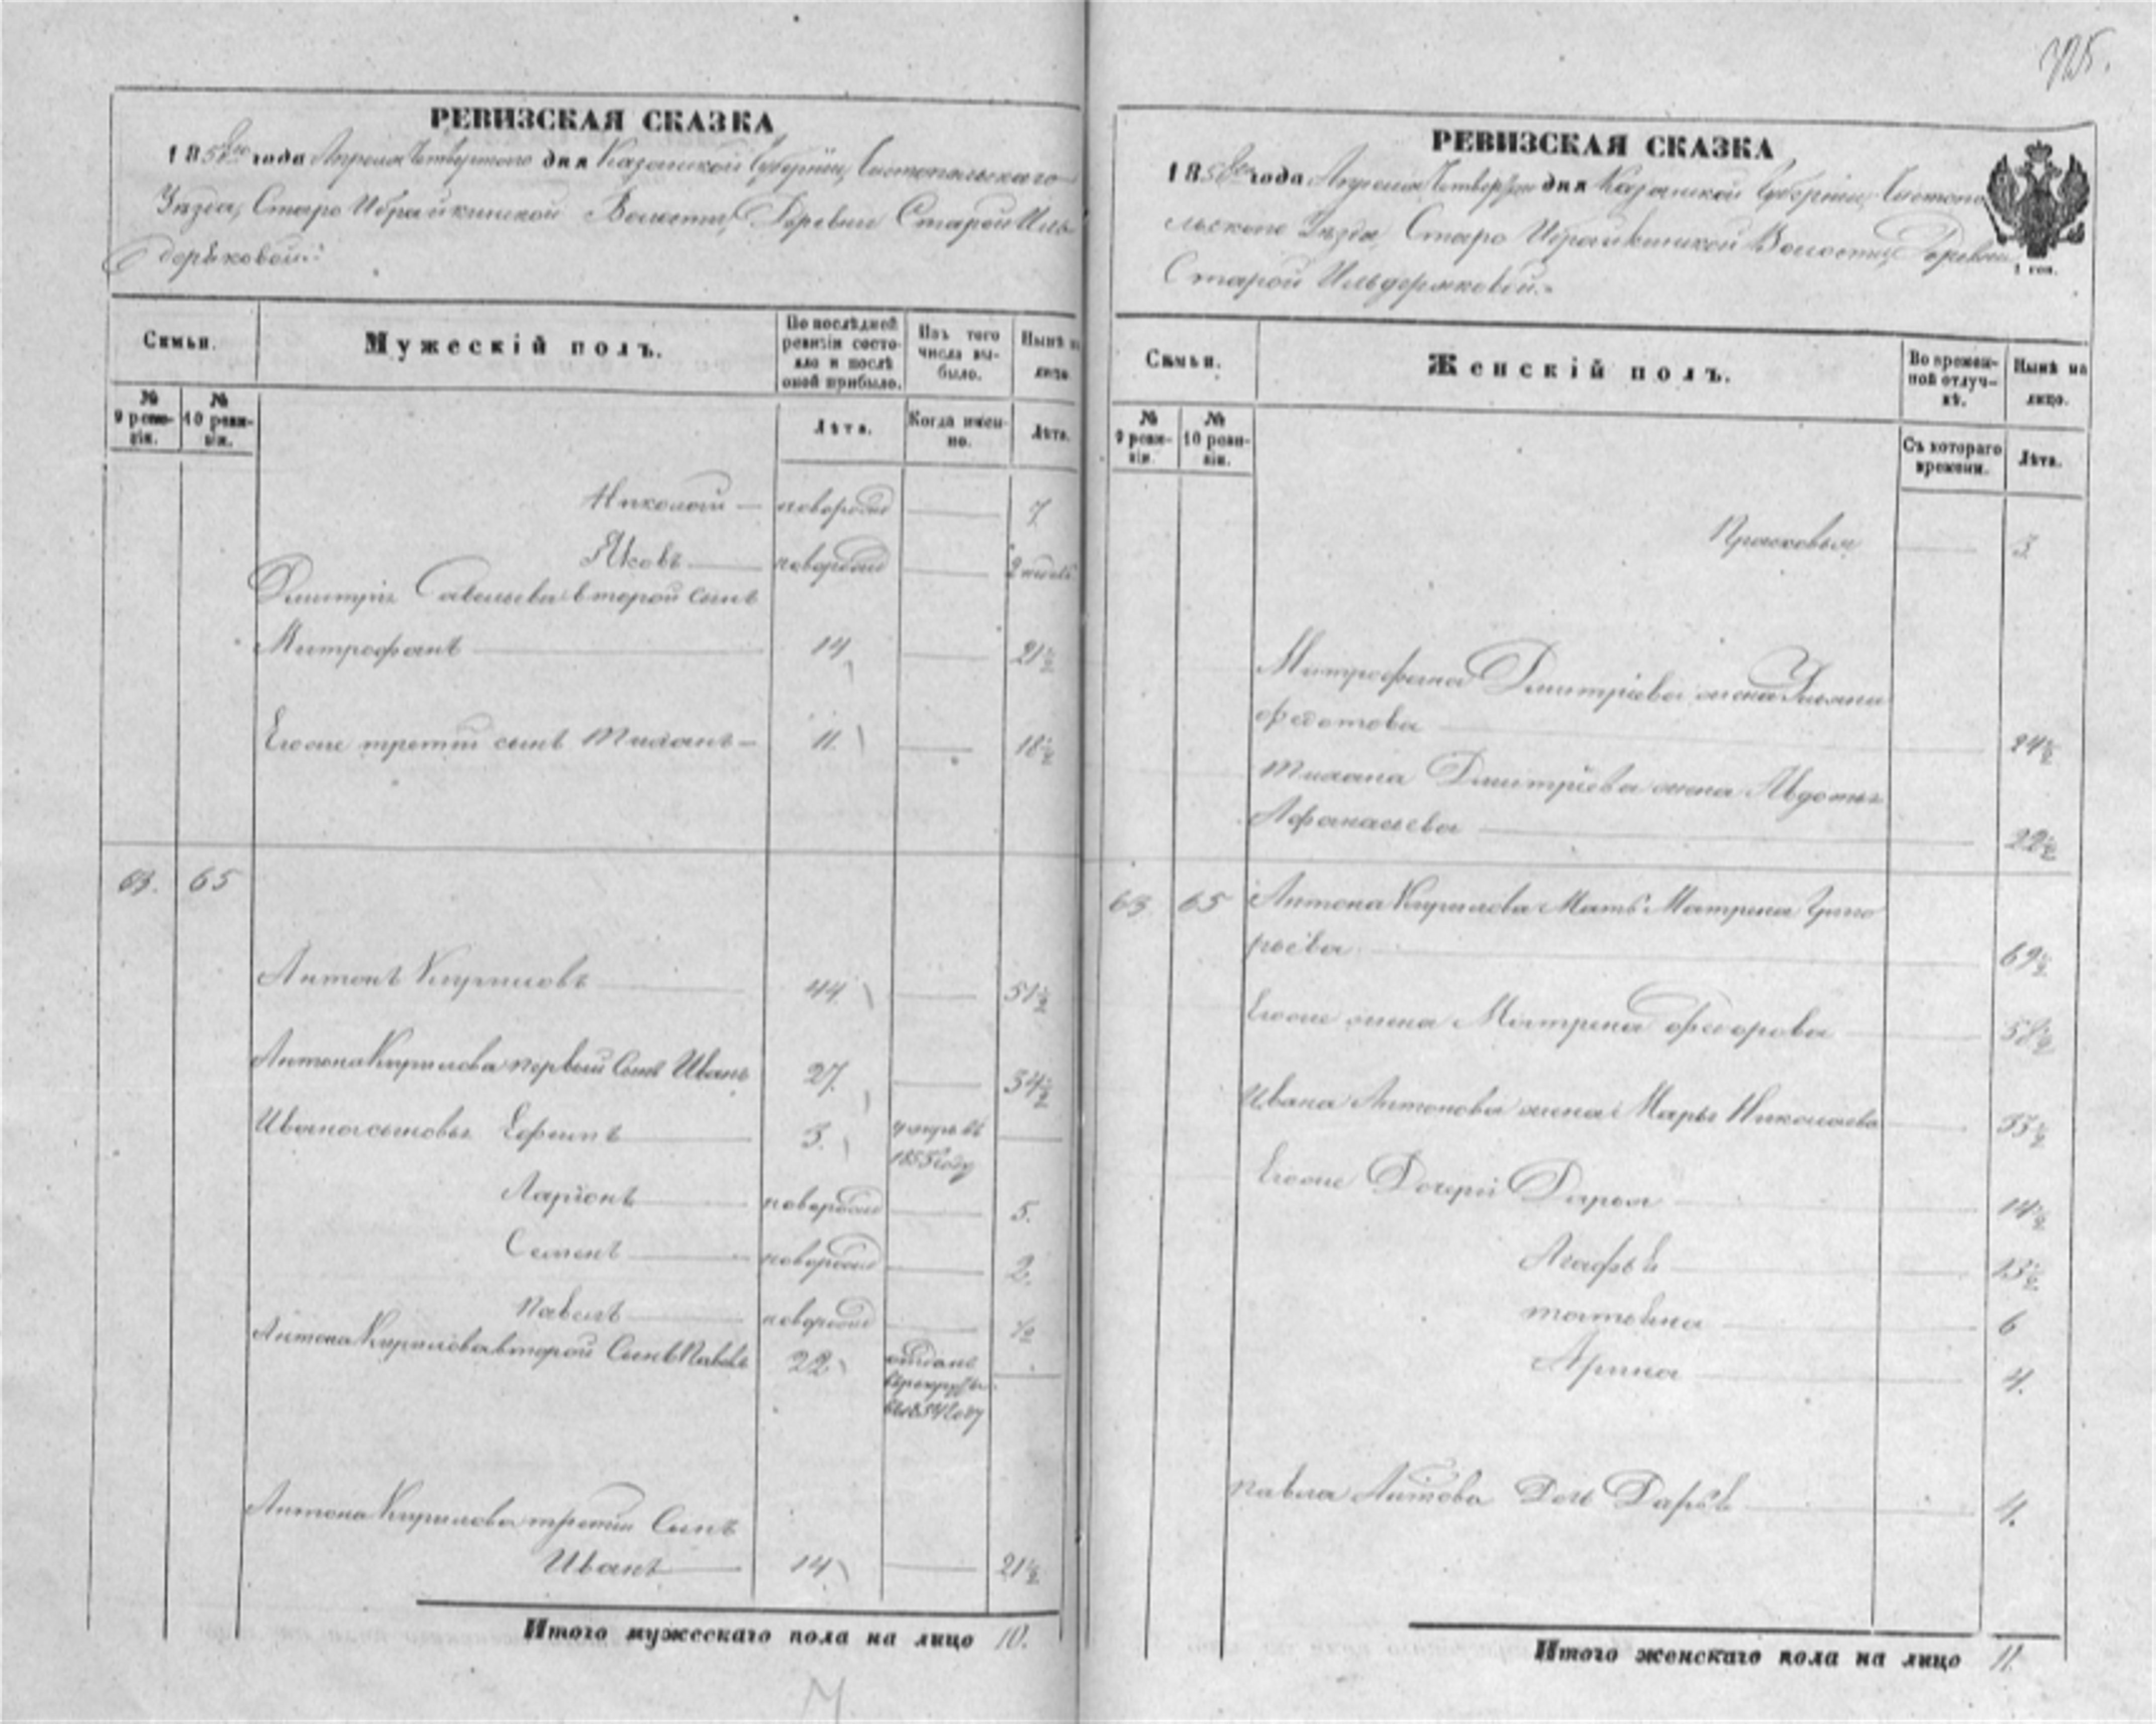 325.
РЕВИЗСКАЯ СКАЗКА
1858го года Апреля Четвертого дня Казанской Губерніи, Чистопольскаго
Уѣзда, Старо Ибрайкинской Волости, Деревни Старой Иль
дерѣковой:
Семьи.
Мужескій полъ.
По послѣдней ревизіи состояло и послѣ оной прибыло.
Изъ того числа выбыло.
Нынѣ на лицо.
№ 9 ревизіи.
№ 10 ревизіи.
Лѣта.
Когда именно.
Лѣта.
Николай — новорожд — 7
Яковъ — новорожд — 2 недѣл.
Дмитрія Савельева второй сынъ
Митрофанъ — 14 — 21½
Егоже третій сынъ Тихонъ — 11. — 18½
63. 65
Антонъ Кириловъ — 44 — 51½
Антона Кирилова первый Сынъ Иванъ 27. — 34½
Ивана сыновья Ефимъ — 3. умеръ въ —
1855 году
Ларіонъ — новорожд — 5.
Семенъ — новорожд — 2.
Павелъ — новорожд — ½
Антона Кирилова второй Сынъ Павелъ 22 отданъ —
в рекруты
въ 1854 году
Антона Кирилова третій Сынъ
Иванъ — 14 — 21½
Итого мужескаго пола на лицо 10.
РЕВИЗСКАЯ СКАЗКА
1858го года Апреля Четвертого дня Казанской Губерніи, Чистопо
льского Уѣзда Старо Ибрайкинской Волости, Деревни
Старой Ильдеряковой.
Семьи.
Женскій полъ.
Во временной отлучкѣ.
Нынѣ на лицо.
№ 9 ревизіи.
№ 10 ревизіи.
Съ котораго времени.
Лѣта.
Прасковья — 3
Митрофана Дмитріева жена Ульяна
Федотова — 24½
Тихона Дмитріева жена Авдотья
Афанасьева — 22½
63 65 Антона Кирилова Мать Матрена Григо
рьева — 69½
Егоже жена Матрена Федорова — 58½
Ивана Антонова жена Марья Николаева — 35½
Егоже Дочери Дарья — 14½
Агафья — 13½
Татьяна — 6
Арина — 4.
Павла Антонова Дочь Дарья — 4.
Итого женскаго пола на лицо 11.